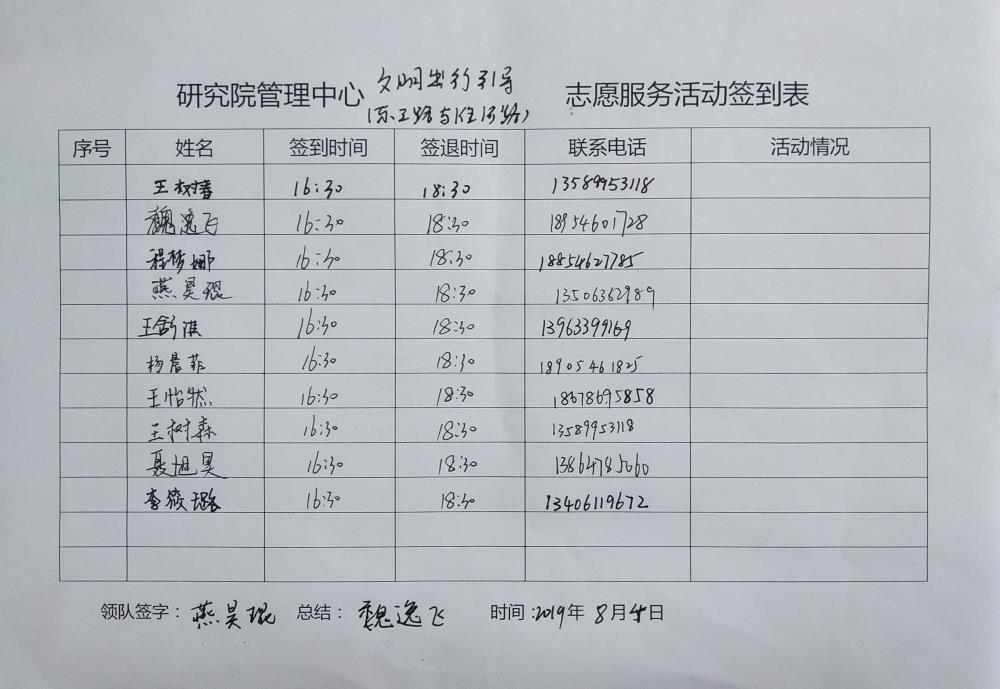 研究院管理中心 文明出行引导 志愿服务活动签到表
(东二路与淮河路)
序号 姓名 签到时间 签退时间 联系电话 活动情况
王树春 16:30 18:30 13589953118
魏逸飞 16:30 18:30 18954601728
程梦娜 16:30 18:30 18854627785
燕昊琨 16:30 18:30 13506362989
王舒淇 16:30 18:30 13963399169
杨晨菲 16:30 18:30 18905461825
王怡然 16:30 18:30 18678695858
王树森 16:30 18:30 13589953118
聂旭昊 16:30 18:30 13864785060
李筱璐 16:30 18:30 13406119672
领队签字：燕昊琨 总结：魏逸飞 时间:2019年8月4日